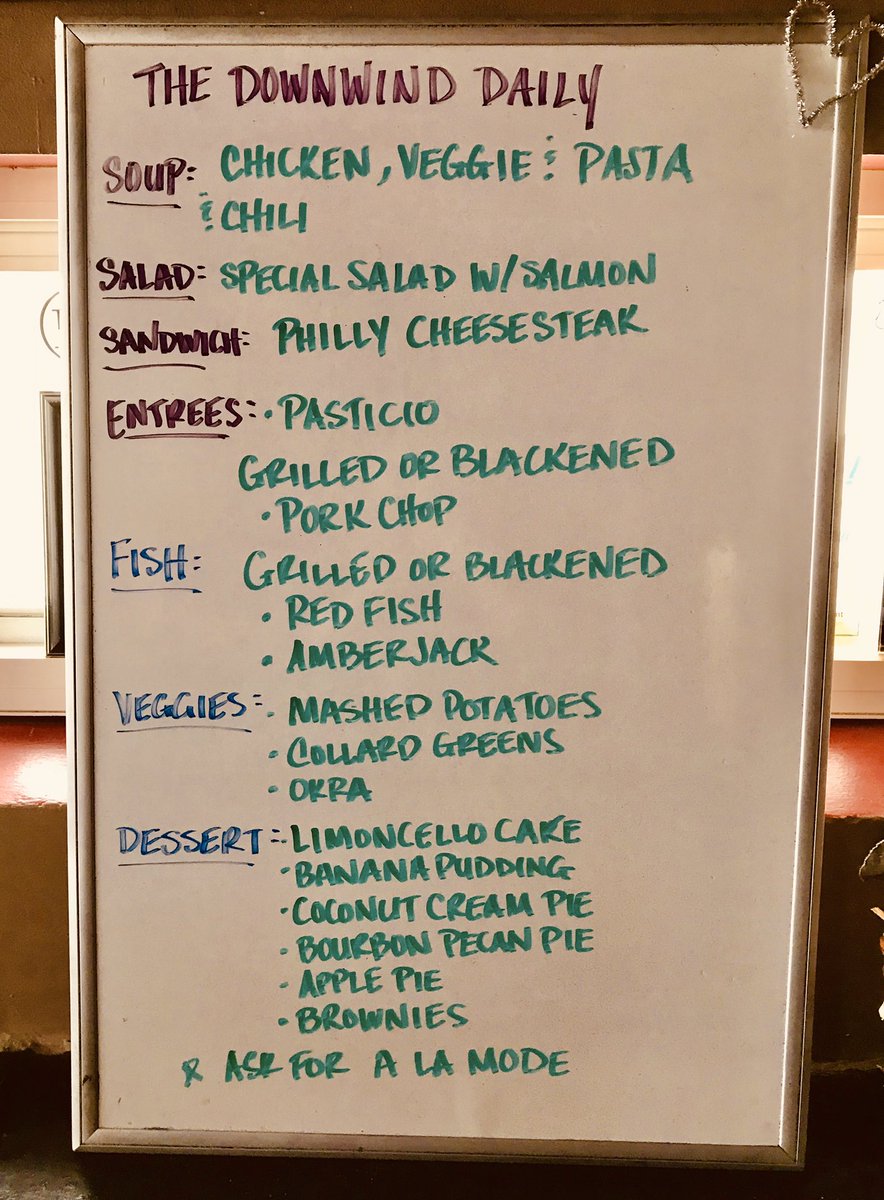 THE DOWNWIND DAILY
SOUP: CHICKEN, VEGGIE & PASTA
& CHILI
SALAD: SPECIAL SALAD W/SALMON
SANDWICH: PHILLY CHEESESTEAK
ENTREES: • PASTICIO
GRILLED OR BLACKENED
• PORK CHOP
FISH: GRILLED OR BLACKENED
• RED FISH
• AMBERJACK
VEGGIES: • MASHED POTATOES
• COLLARD GREENS
• OKRA
DESSERT: • LIMONCELLO CAKE
• BANANA PUDDING
• COCONUT CREAM PIE
• BOURBON PECAN PIE
• APPLE PIE
• BROWNIES
* ASK FOR A LA MODE